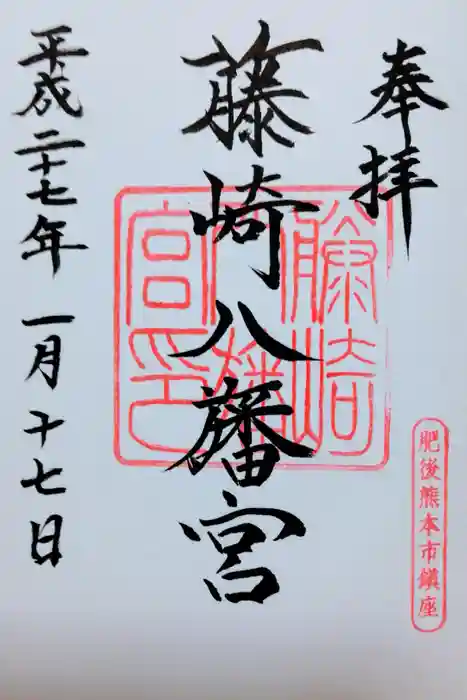 奉拝
肥後熊本市鎮座
藤崎八旛宮
藤崎
八旛
宮印
平成二十七年一月十七日